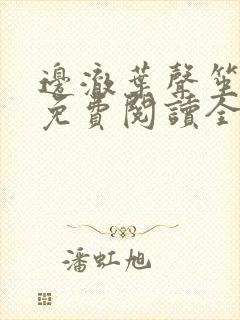 邊澈葉聲笙
免費閱讀全
潘虹旭